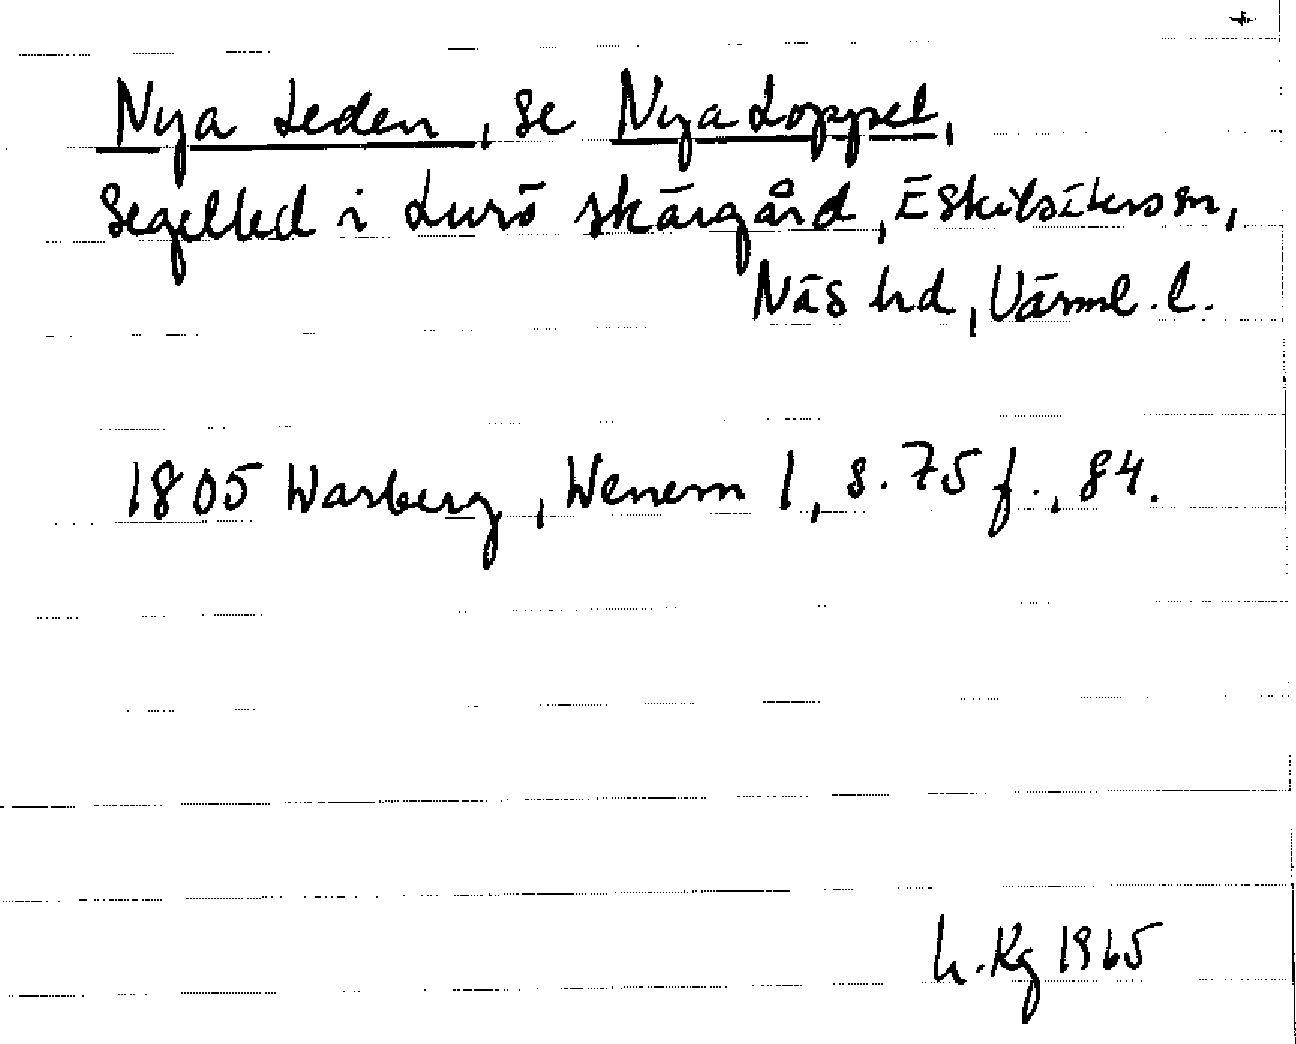 Nya Leden, se Nya Loppet,
segelled i Lurö skärgård, Eskilsäters sn,
Näs hd, Värml. l.
1805 Warberg, Wenern 1, s. 75 f., 84.
h. Kg 1965